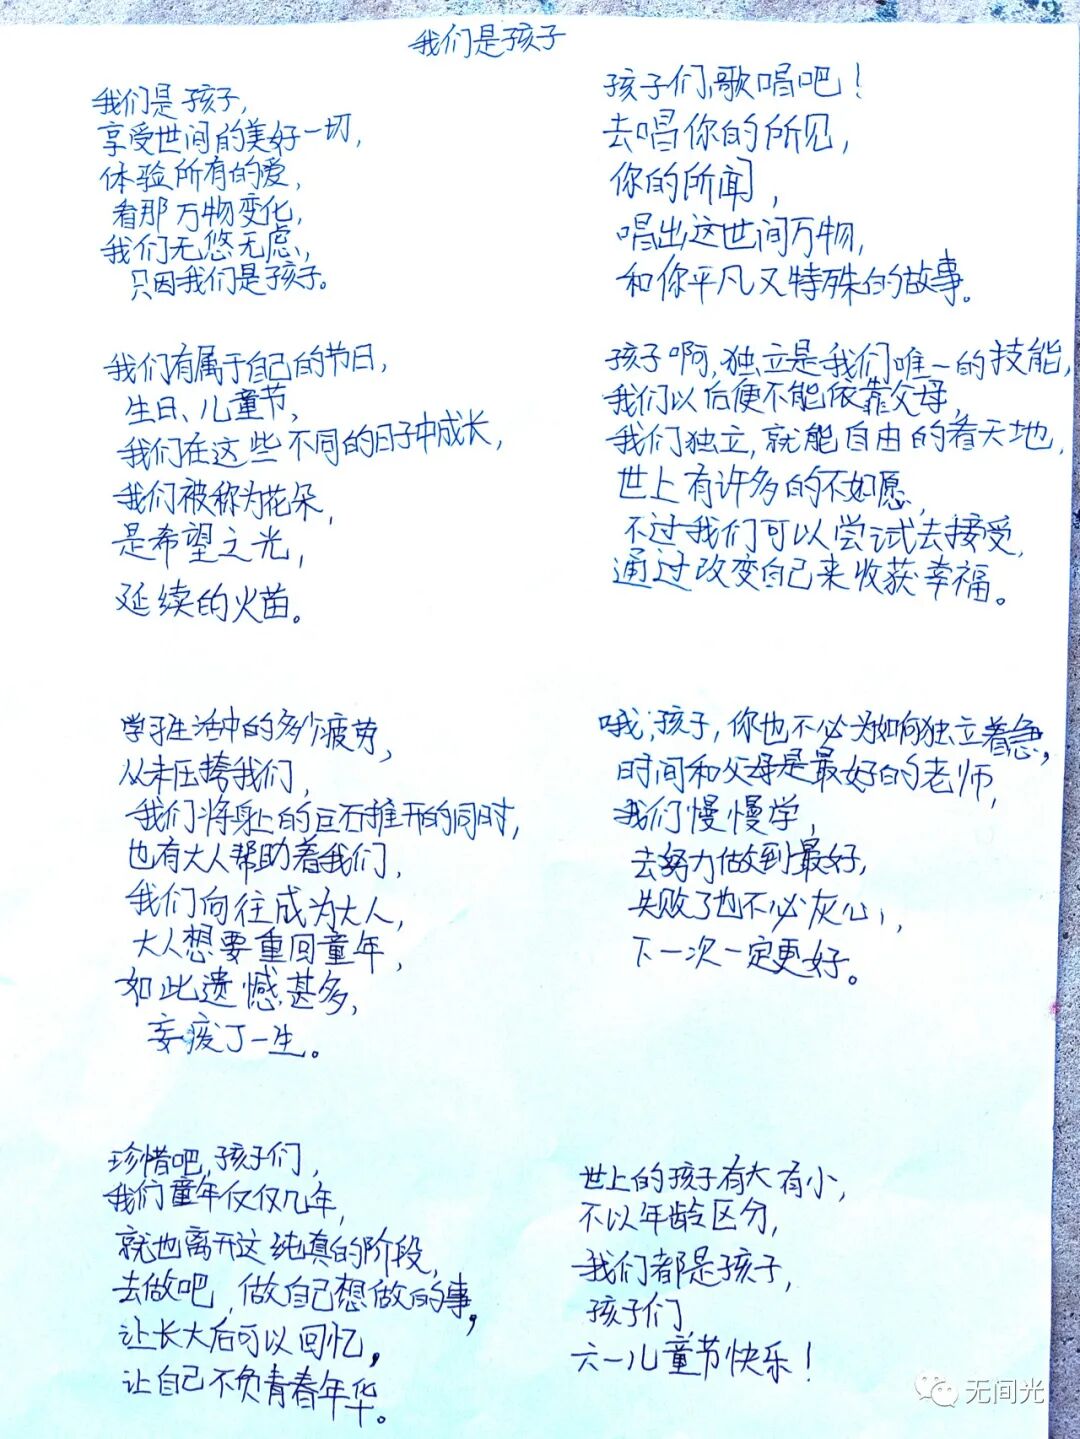 我们是孩子
我们是孩子,
享受世间的美好一切,
体验所有的爱,
看那万物变化,
我们无悠无虑,
只因我们是孩子。
我们有属于自己的节日,
生日、儿童节,
我们在这些不同的日子中成长,
我们被称为花朵,
是希望之光,
延续的火苗。
学习生活中的多少疲劳,
从未压挎我们,
我们将身上的巨石推开的同时,
也有大人帮助着我们,
我们向往成为大人,
大人想要重回童年,
如此遗憾甚多,
妄废了一生。
珍惜吧,孩子们,
我们童年仅仅几年,
就也离开这纯真的阶段,
去做吧,做自己想做的事,
让长大后可以回忆,
让自己不负青春年华。
孩子们,歌唱吧!
去唱你的所见,
你的所闻,
唱出这世间万物,
和你平凡又特殊的故事。
孩子啊,独立是我们唯一的技能,
我们以后便不能依靠父母,
我们独立,就能自由的看天地,
世上有许多的不如愿,
不过我们可以尝试去接受,
通过改变自己来收获幸福。
哦,孩子,你也不必为如何独立着急,
时间和父母是最好的老师,
我们慢慢学,
去努力做到最好,
失败了也不必灰心,
下一次一定更好。
世上的孩子有大有小,
不以年龄区分,
我们都是孩子,
孩子们,
六一儿童节快乐!
无间光